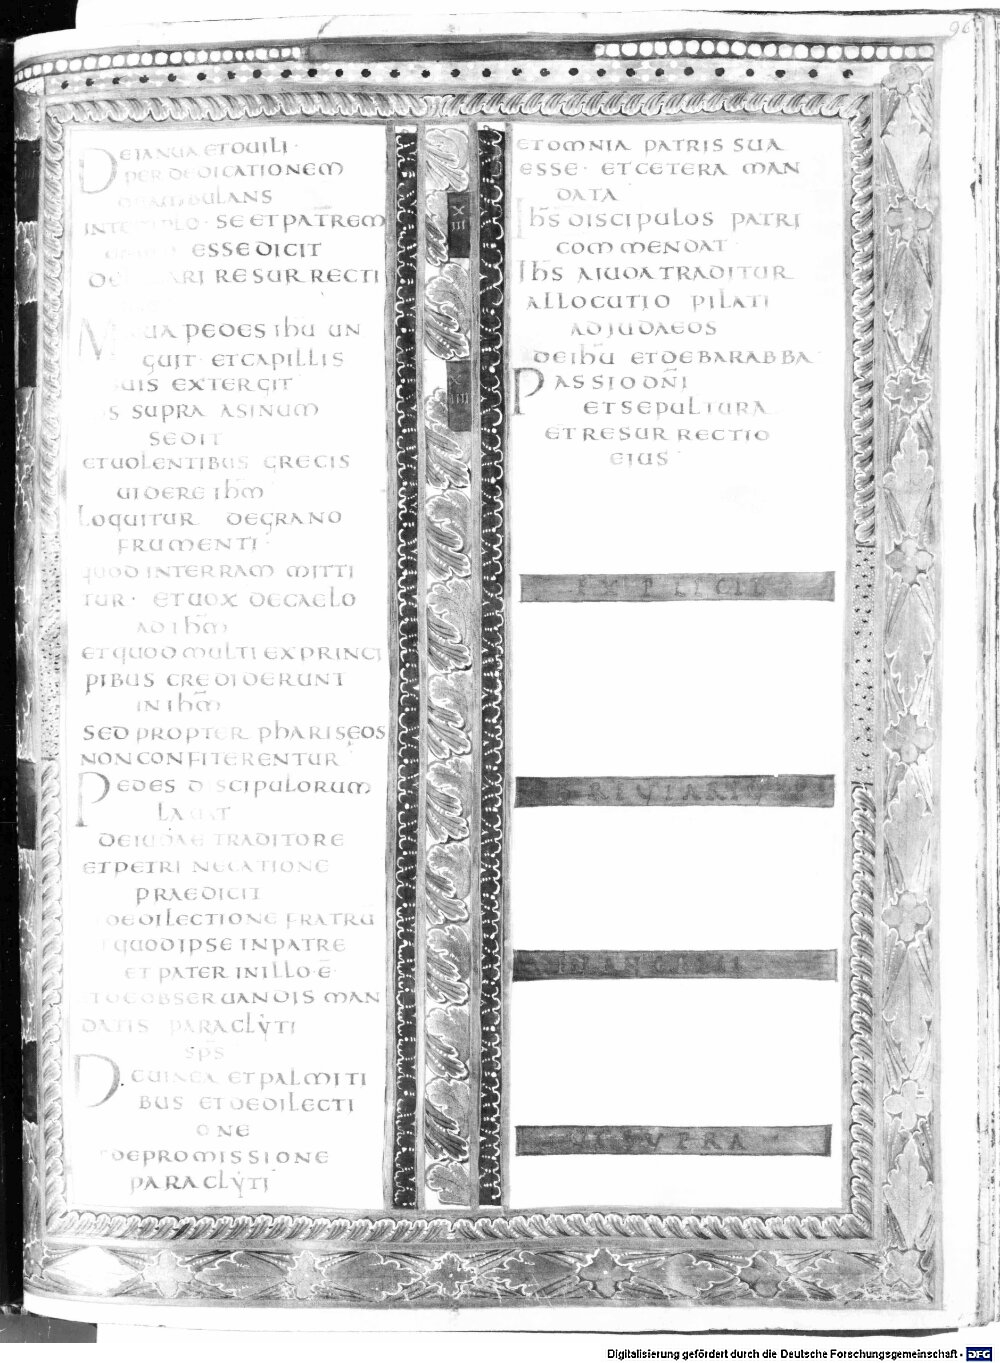 96
DE IANUA ET OUILI·
PER DEDICATIONEM
AMBULANS
SE ET PAT̄REM
ESSE DICIT
RESURRECTI
PEDES IHŪ UN
GUIT· ET CAPILLIS
SUIS EXTERGIT
IS SUPRA ASINUM
SEDIT
ET UOLENTIBUS GRECIS
UIDERE IHM̄
LOQUITUR DE GRANO
FRUMENTI·
QUOD IN TERRAM MITTI
TUR· ET UOX DE CAELO
AD IHM̄
ET QUOD MULTI EX PRINCI
PIBUS CREDIDERUNT
IN IHM̄
SED PROPTER PHARISĘOS
NON CONFITERENTUR
PEDES DISCIPULORUM
LAUAT
DE IUDAE TRADITORE
ET PETRI NEGATIONE
PRAEDICIT
DE DILECTIONE FRATRŪ
QUOD IPSE IN PATRE
ET PATER IN ILLO Ē·
ET DE OBSERUANDIS MAN
DATIS PARACLYTI
SP̄S
DE UINEA ET PALMITI
BUS ET DE DILECTI
ONE
DE PROMISSIONE
PARACLYTI
X
III
X
IIII
ET OMNIA PATRIS SUA
ESSE· ET CETERA MAN
DATA
IH̄S DISCIPULOS PATRI
COMMENDAT
IH̄S A IUDA TRADITUR
ALLOCUTIO PILATI
AD JUDAEOS
DE IHŪ ET DE BARABBA
PASSIO DN̄I
ET SEPULTURA
ET RESURRECTIO
EIUS
EXPLICIT
BREUIARIU
SUPRA
Digitalisierung gefördert durch die Deutsche Forschungsgemeinschaft - DFG